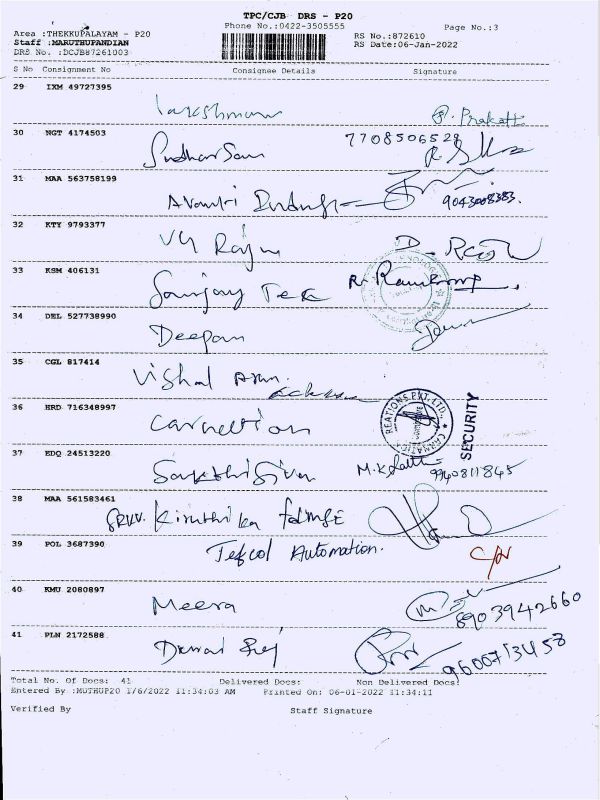 TPC/CJB DRS - P20
Phone No.:0422-3505555
Page No.:3
Area :THEKKUPALAYAM - P20
Staff :MARUTHUPANDIAN
DRS No. :DCJB87261003
RS No.:872610
RS Date:06-Jan-2022
S No Consignment No Consignee Details Signature
29 IXM 49727395
Lakshman P. Prakash
30 NGT 4174503
7708506529
Sudharsan
31 MAA 563758199
9043008383.
32 KTY 9793377
VG Raju
33 KSM 406131
Sanjay Tex
34 DEL 527738990
Deepan
35 CGL 817414
Vishal Arun
36 HRD 716348997
Carnation
SECURITY
37 EDQ 24513220
Sakthi Sivan
9940811845
38 MAA 561583461
SRVV. Kiruthika
39 POL 3687390
Tefcol Automation.
40 KMU 2080897
Meera
8903942660
41 PLN 2172588
9600713458
Total No. Of Docs: 41 Delivered Docs: Non Delivered Docs:
Entered By :MUTHUP20 1/6/2022 11:34:03 AM Printed On: 06-01-2022 11:34:11
Verified By Staff Signature